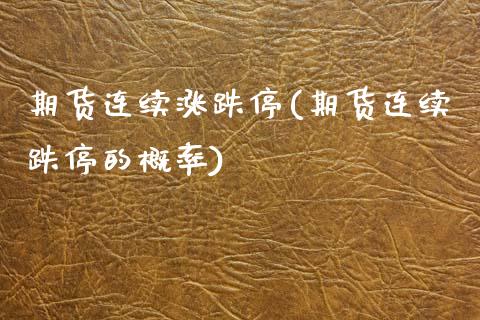 期货连续涨跌停(期货连续
跌停的概率)